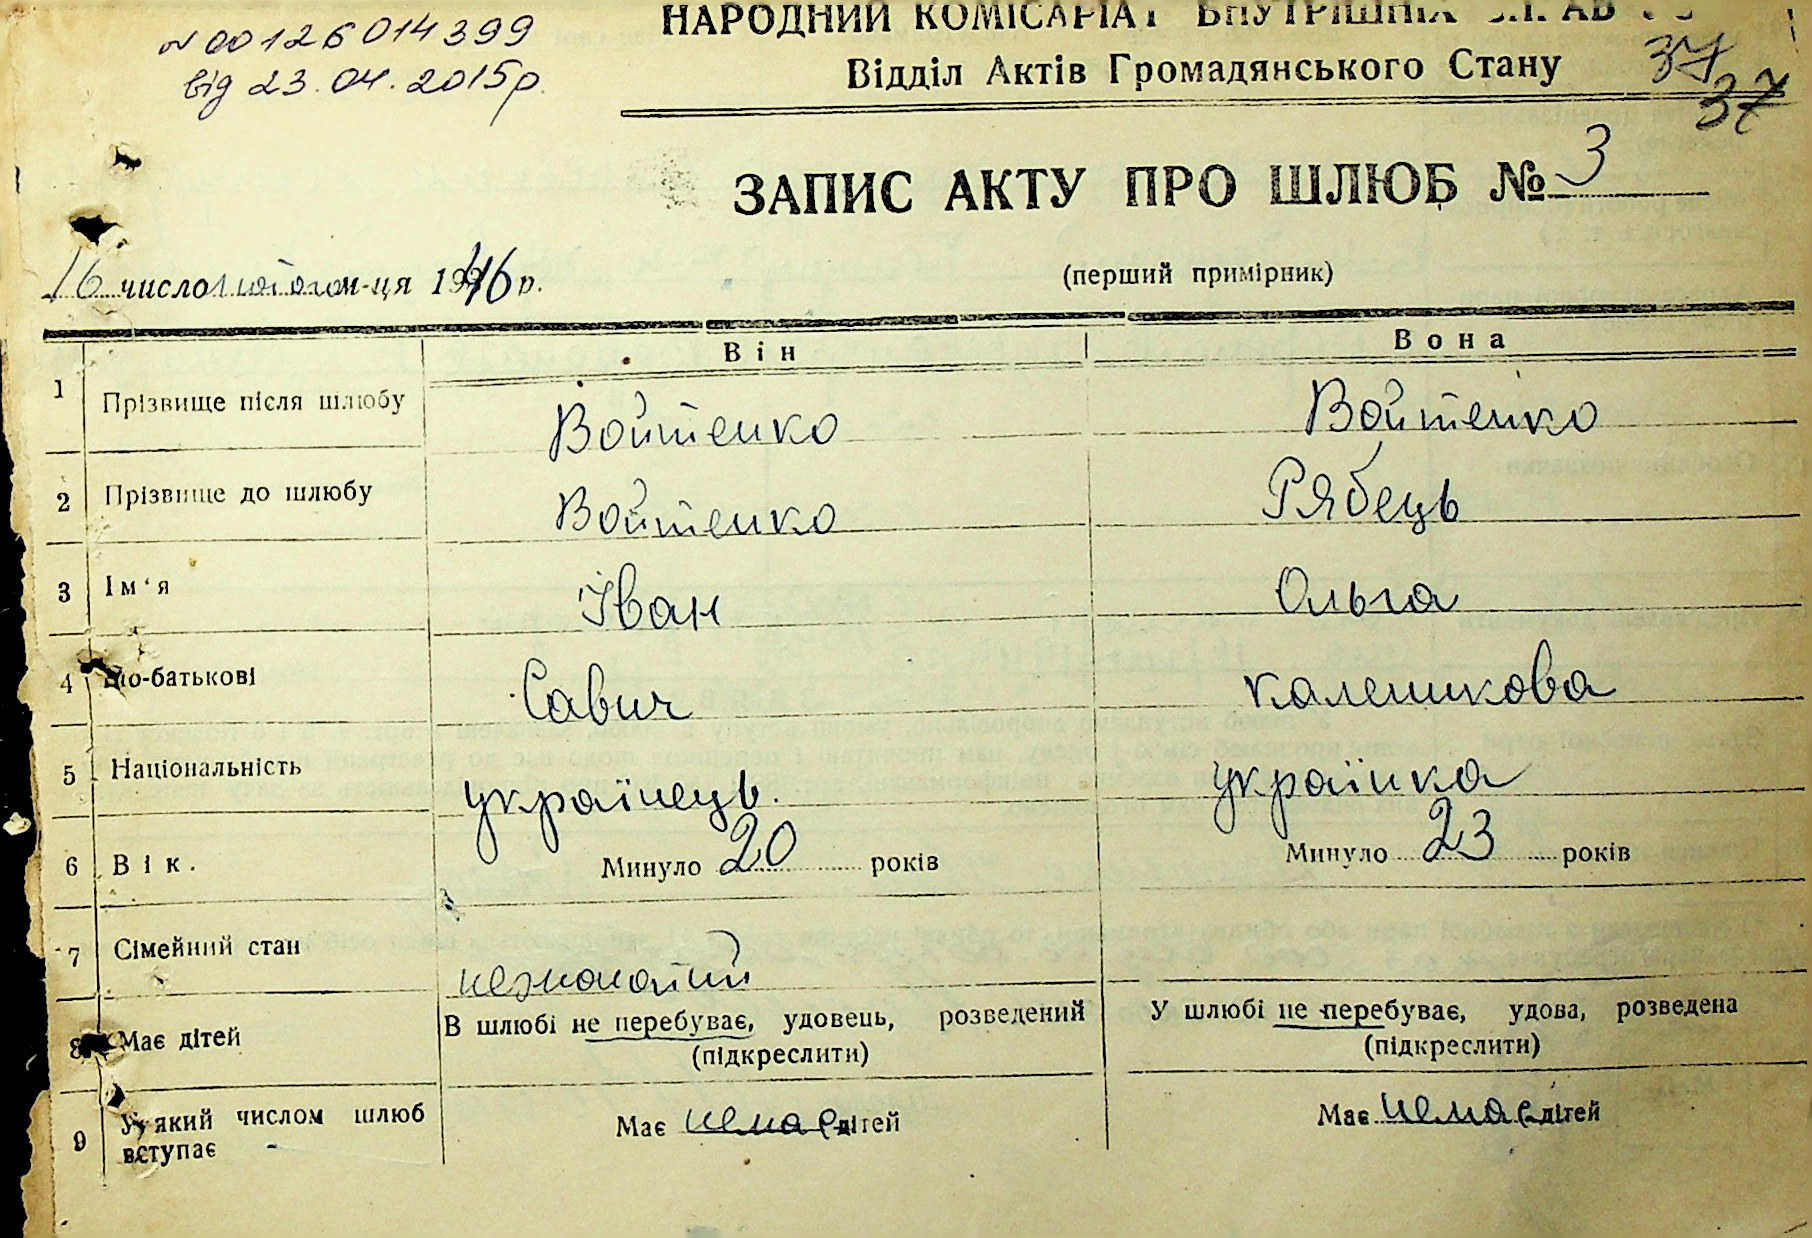 № 00126014399
від 23.04.2015р.
НАРОДНИЙ КОМІСАРІАТ ВНУТРІШНІХ
Відділ Актів Громадянського Стану
37
37
ЗАПИС АКТУ ПРО ШЛЮБ № 3
16 число лютого м-ця 1946 р.
(перший примірник)
Він Вона
1 Прізвище після шлюбу Войтенко Войтенко
2 Прізвище до шлюбу Войтенко Рябець
3 Ім'я Іван Ольга
4 По-батькові Савич Калешкова
5 Національність українець. українка
6 Вік. Минуло 20 років Минуло 23 років
7 Сімейний стан
В шлюбі не перебуває, удовець, розведений У шлюбі не перебуває, удова, розведена
(підкреслити) (підкреслити)
8 Має дітей
Має немає дітей Має немає дітей
9 У який числом шлюб
вступає